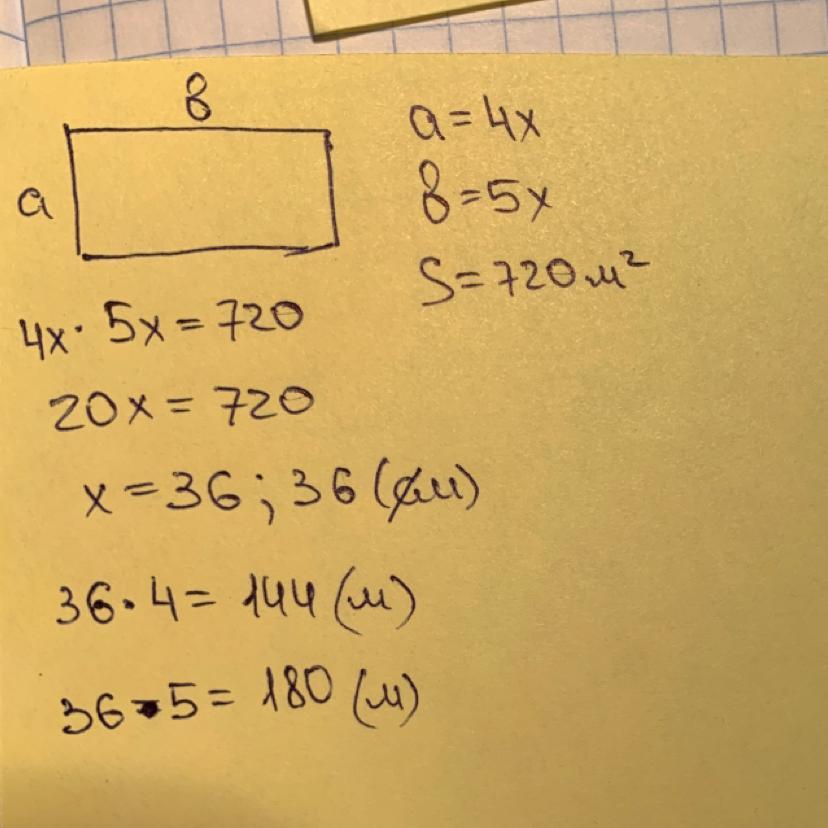 в
a
a = 4x
в = 5x
S = 720 м²
4x · 5x = 720
20x = 720
x = 36 ; 36 (м)
36 · 4 = 144 (м)
36 · 5 = 180 (м)